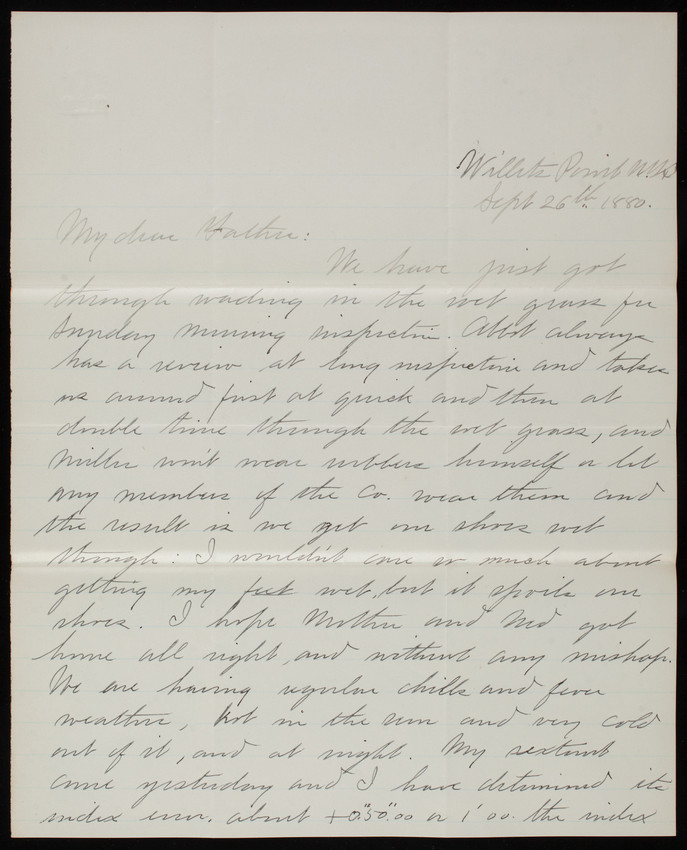 Willets Point N.Y.H
Sept 26th. 1880.
My dear Father:
We have just got
through wading in the wet grass for
Sunday morning inspection. Abbot always
has a review at long inspection and takes
us around first at quick and then at
double time through the wet grass, and
Miller won't wear rubbers himself or let
any members of the Co. wear them and
the result is we get our shoes wet
through: I wouldn't care so much about
getting my feet wet, but it spoils our
shoes. I hope Mother and Ned got
home all right, and without any mishap.
We are having regular chills and fever
weather, hot in the sun and very cold
out of it, and at night. My sextant
came yesterday and I have determined its
index error. about +0.'50."00 or 1' 00. the index